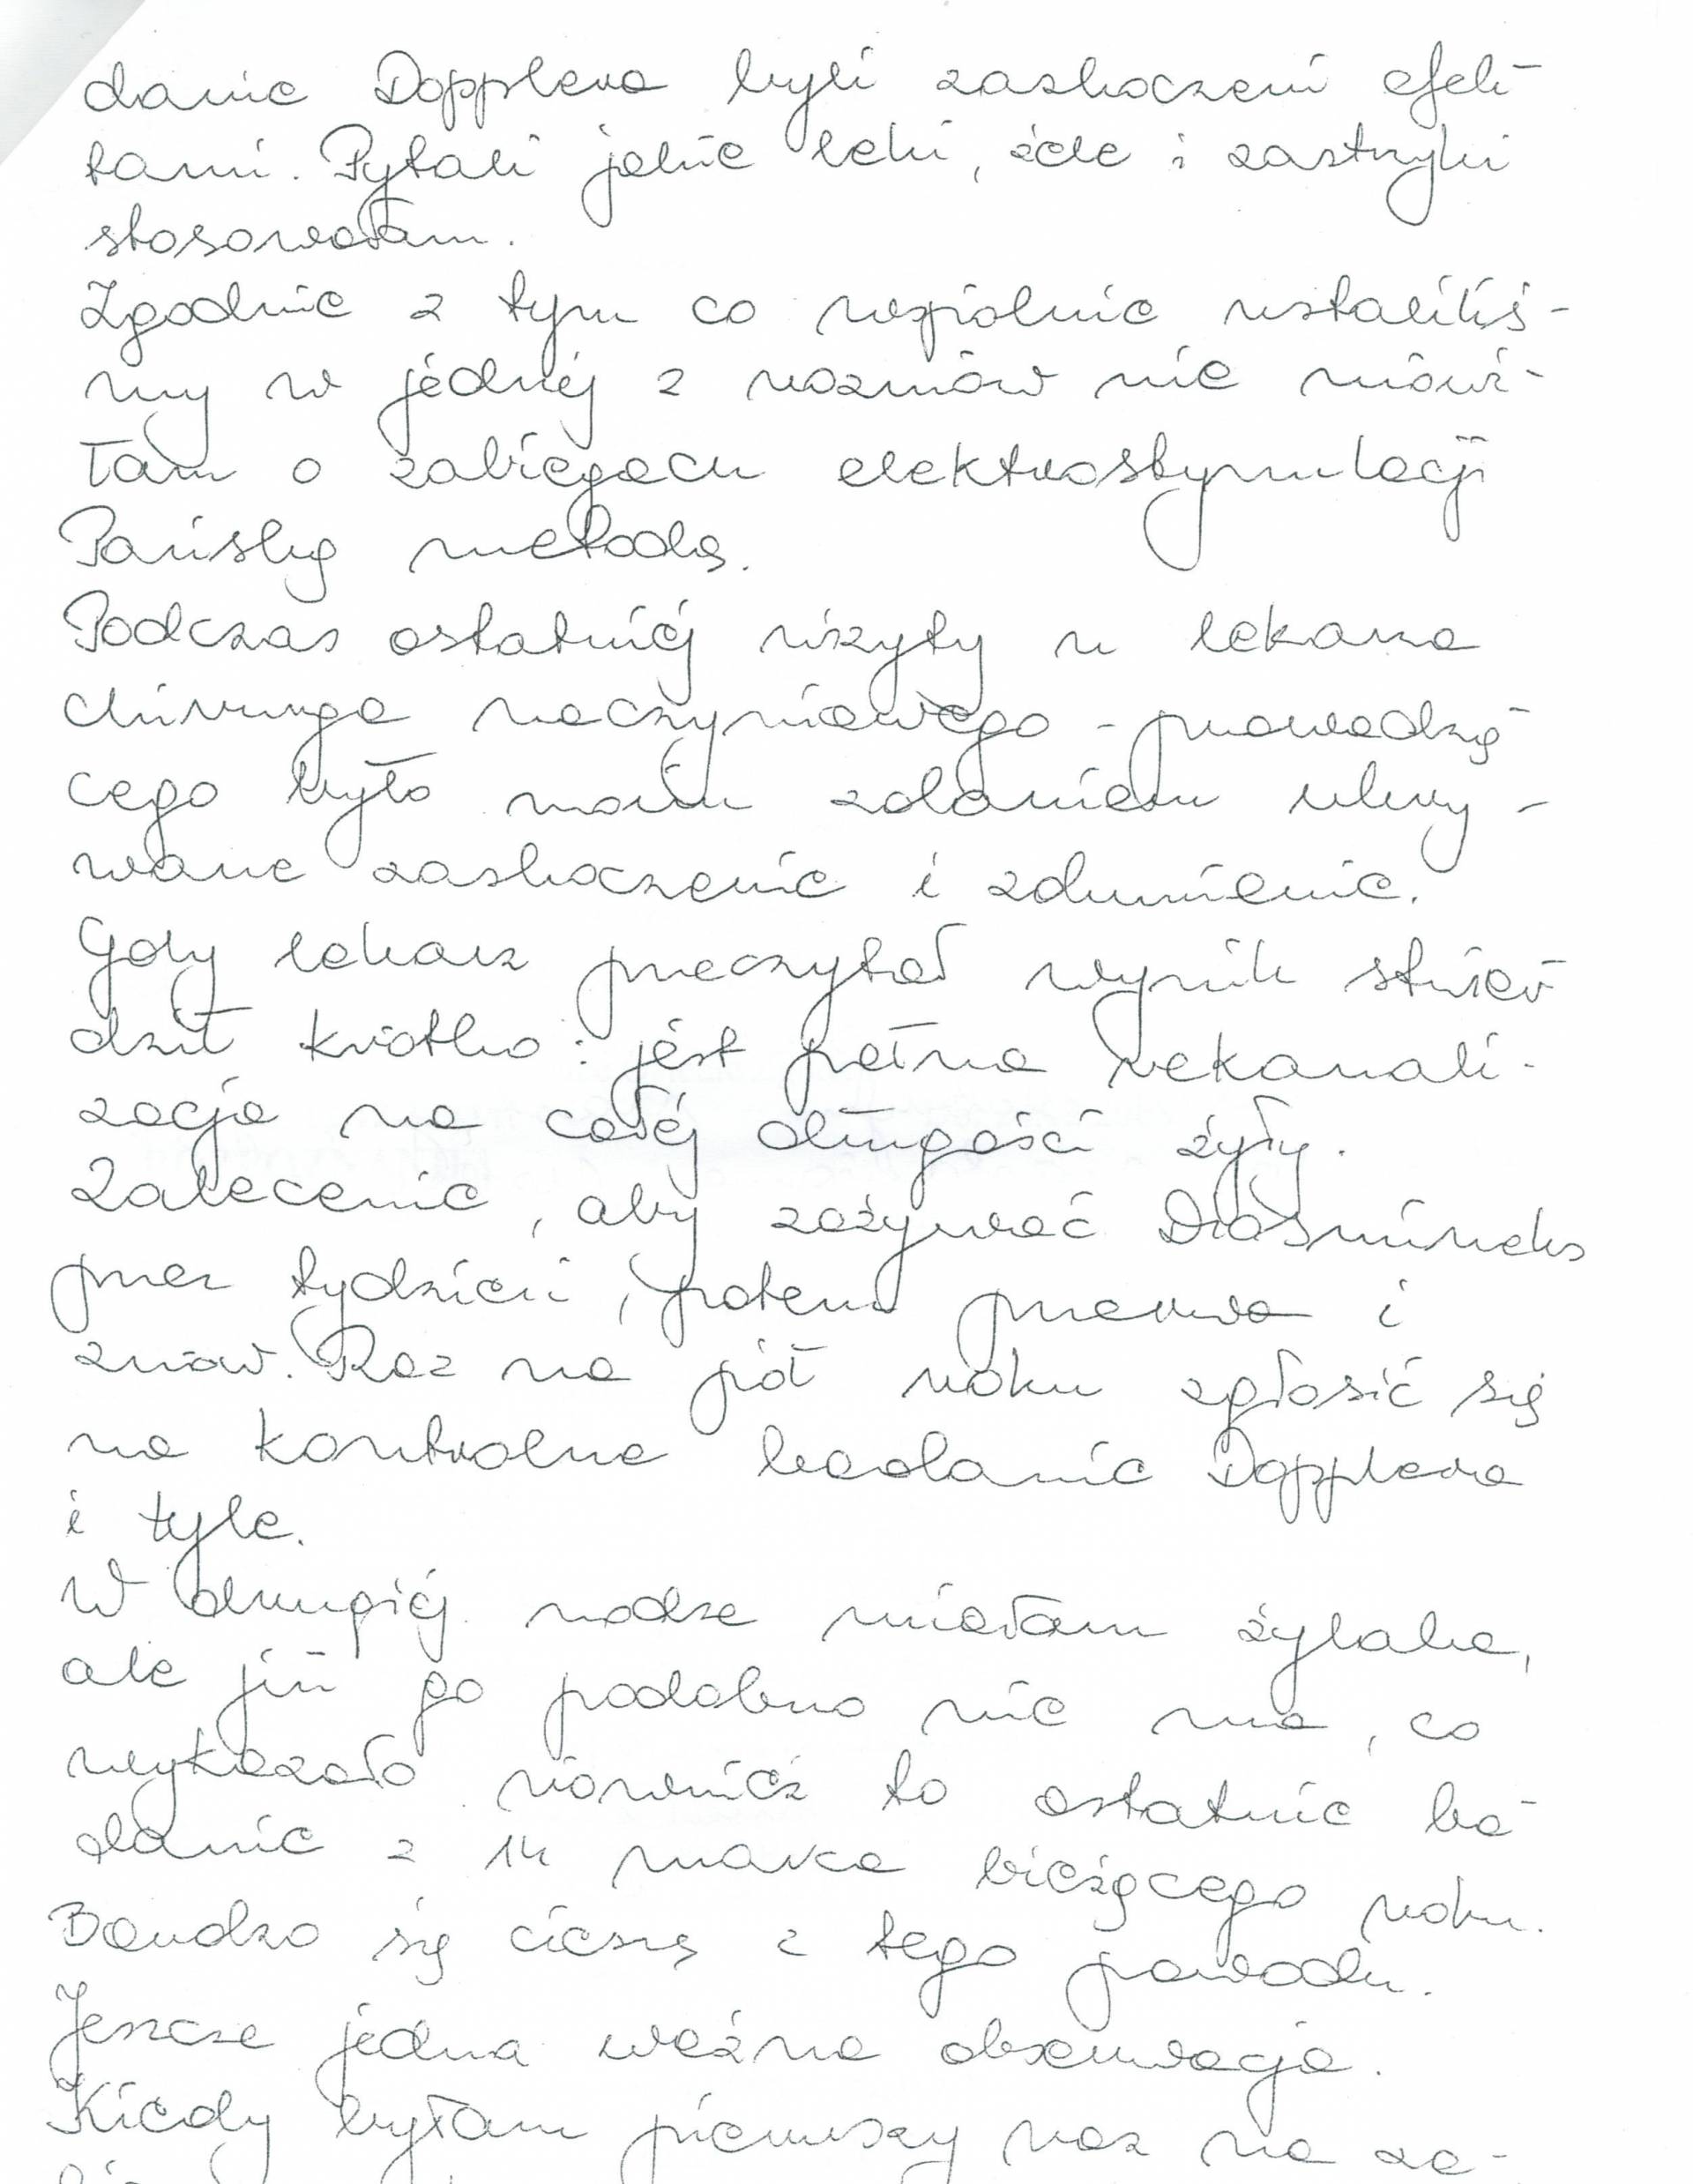 danie Dopplera byli zaskoczeni efek-
tami. Pytali jakie leki, żele i zastrzyki
stosowałam.
Zgodnie z tym co wspólnie ustaliliś-
my w jednej z rozmów nie mówi-
łam o zabiegach elektrostymulacji
Pańską metodą.
Podczas ostatniej wizyty u lekarza
chirurga naczyniowego - prowadzą-
cego było moim zdaniem ukry-
wane zaskoczenie i zdumienie.
Gdy lekarz przeczytał wynik stwier-
dził krótko: jest pełna rekanali-
zacja na całej długości żyły.
Zalecenie, aby zażywać Diosmineks
przez tydzień, potem przerwa i
znów. Raz na pół roku zgłosić się
na kontrolne badanie Dopplera
i tyle.
W drugiej nodze miałam żylaka,
ale już go podobno nie ma, co
wykazało również to ostatnie ba-
danie z 14 marca bieżącego roku.
Bardzo się cieszę z tego powodu.
Jeszcze jedna ważna obserwacja.
Kiedy byłam pierwszy raz na za-